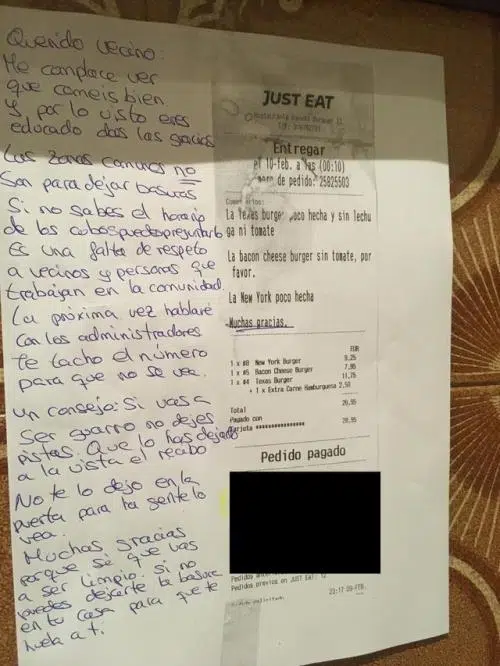 Querido vecino:
Me complace ver
que comeis bien
Y, por lo visto eres
educado das las gracias
Las zonas comunes no
son para dejar basuras
Si no sabes el horario
de los cubos puedes preguntarlo
Es una falta de respeto
a vecinos y personas que
trabajan en la comunidad.
La próxima vez hablaré
con los administradores
te tacho el número
para que no se vea.
un consejo: Si vas a
ser guarro no dejes
pistas. Que lo has dejado
a la vista el recibo
No te lo dejo en la
puerta para la gente lo
vea.
Muchas gracias
porque sé que vas
a ser limpio. si no
puedes dejarte la basura
en tu casa para que te
huela a ti.
JUST EAT
Entregar
el 10-feb. a las (00:10)
de pedido: 25825503
Comentarios:
La Texas burger poco hecha y sin lechu
ga ni tomate
La bacon cheese burger sin tomate, por
favor.
La New York poco hecha
Muchas gracias.
EUR
1 x #8 New York Burger 9,25
1 x #5 Bacon Cheese Burger 7,95
1 x #4 Texas Burger 11,75
+ 1 x Extra Carne Hamburguesa 2,50
Total 28,95
Pagado con
Tarjeta **************** 28,95
Pedido pagado
Pedidos previos en JUST EAT: 12
23:17 09-FEB.